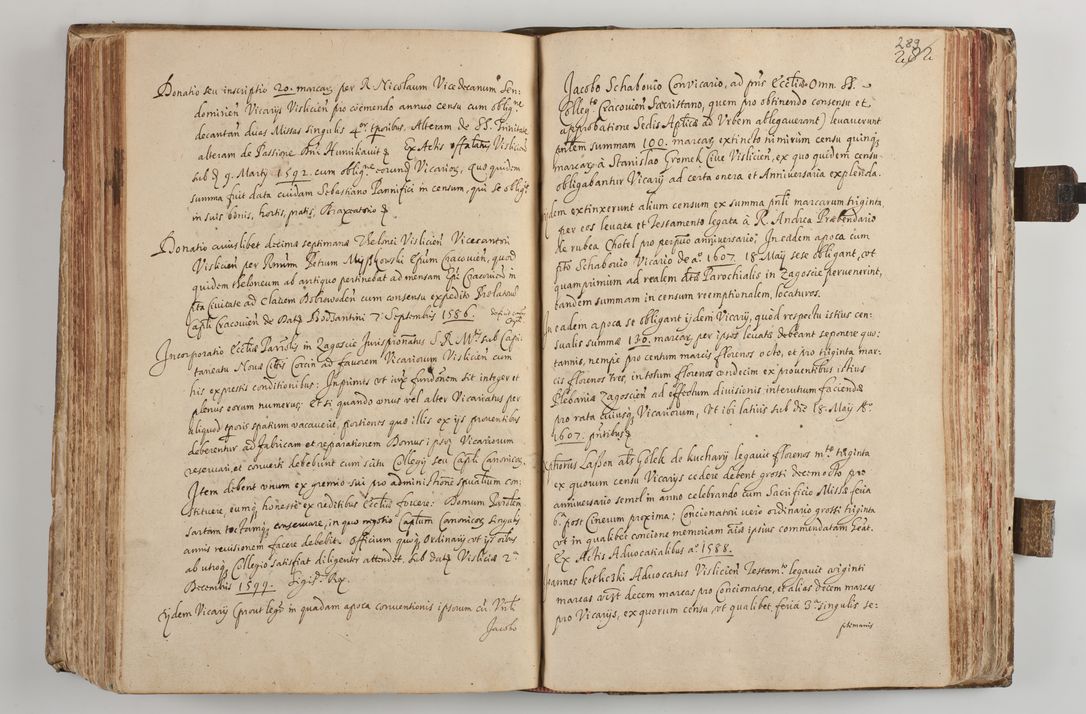 Donatio seu inscriptio 20. marcar. per R. Nicolaum Vicedecanum Sen-
dominien Vicarijs Vislicien pro coemendo annuo censu cum oblig.ne
decantan duas Missas singulis 4.or tporibus. Alteram de SS. Trinitate
alteram de Passione Dni Ex Actis Vislicien
sub 9. Martij 1592. cum oblig.ne eorund Vicarior. Quo quidem
summa fuit data cuidam Sebastiano Pannifici in censum, qui se oblig.
in suis bonis, hortis, pratis, Braxeatorio
Donatio cuiuslibet decima septimana Thelonei Vislicien Vicecantori
Vislicien per Rmum Petrum Myszkowski Epum Cracovien, quod
quidem theloneum ab antiquo pertinebat ad mensam Epi Cracovien in
pta Civitate ad Clauem cum consensu expedito Prelatorum
Capli Cracovien de Data Bodzantini 7. Septembris 1586.
Incorporatio Ecclia Parolis in Zagoscie Jurispronatus S. R. M.tis sub Capi-
taneatu Noua Ciuis Corcin ad fauorem Vicariorum Vislicien cum
his expressis conditionibus: Inprimis vt iuxta fundonem sit integer et
plenus eorum numerus; Et si quando vnus vel alter Vicariatus per
aliquod tporis spatium vacauerit, portiones quo illis ex ijs prouentibus
deberentur ad fabricam et reparationem Domus ipsor Vicariorum
reseruari, et conuerti debebunt cum scitu Collegij seu Capli Canonicor.
Item debent vnum ex gremio sui pro administratione spualium con-
stituere, eumq honeste ex reditibus Ecclia fouere: Domum Parolem
sartam tectamq conseruare, in quo negotio Caplum Canonicor singulis
annis reuisionem facere debebit. Officium quoq Ordinarij vt ijs oibus
ab utroq Collegio satisfiat diligenter attendet. Sub data Vislicia 2.a
Decembris 1599. Sigis.d Rex.
Eijdem Vicarij (prout legr in quadam apoca conuentionis ipsorum cu Vnli
Jacobo
289
Jacobo Schabouio Conuicario, ad pns Ecclia Omn SS.
Colleg.ta Cracouien Sacristano, quem pro obtinendo consensu et
approbatione Sedis Aplica ad Vrbem ablegauerant) leuauerunt
tandem summam 100. marcar, extincto nimirum censu quinq
marcar, a Stanislao Gromek Ciue Vislicien, ex quo quidem censu
obligabantur Vicarij ad certa onera et Anniuersaria explenda.
Ijdem extinxerunt alium censum ex summa pnli marcarum triginta
per eos leuata et Testamento legata a R. Andrea Præbendario
de rubea Chotel pro perpuo anniuersario: In eadem apoca cum
pto Schabouio Vicario de a.o 1607. 18 Maij sese obligant, vt
quamprimum ad realem Parochialis in Zagoscie peruenerint,
tandem summam in censum reemptionalem, locaturos.
In eadem apoca se obligant ijdem Vicarij, quod respectu istius cen-
sualis summa 130. marcar, per ipsos leuata debeant seponere quo-
tannis, nempe pro centum marcis florenos octo, et pro triginta mar-
cis florenos tres, in totum florenos vndecim ex prouentibus istius
Plebania Zagoscien ad effectum diuisionis interutum facienda
pro rata cuiusq Vicariorum, Vt ibi latius sub die 18. Maij A.o
1607. pntibus
Xphorus Lasson als Golek de kuchary legauit florenos m.ta triginta
ex quorum censu Vicarijs cedere debent grossi decemocto pro
anniuersario semel in anno celebrando cum Sacrificio Missa feria
6.a post Cinerum proxima; Concionatori vero ordinario grossi triginta
vt in qualibet concione memoriam ais ipsius commendatam heat.
Ex Actis Aduocatialibus a.o 1588.
Joannes kotliczki Aduocatus Vislicien Testam.to legauit viginti
marcas vizt decem marcas pro Concionatore, et alias decem marcas
pro Vicarijs, ex quorum censu, vt qualibet, feria 3.a singulis se-
ptemanis